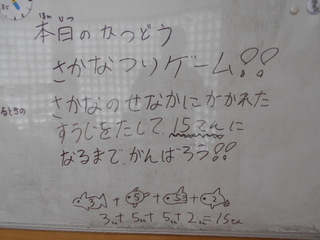 ほん じつ
本日のかつどう
さかなつりゲーム!!
さかなのせなかにかかれた
るときの
すうじをたして、15てんに
なるまで、がんばろう!!
3 + 5 + 5 + 2
3てん+5てん+5てん+2てん=15てん